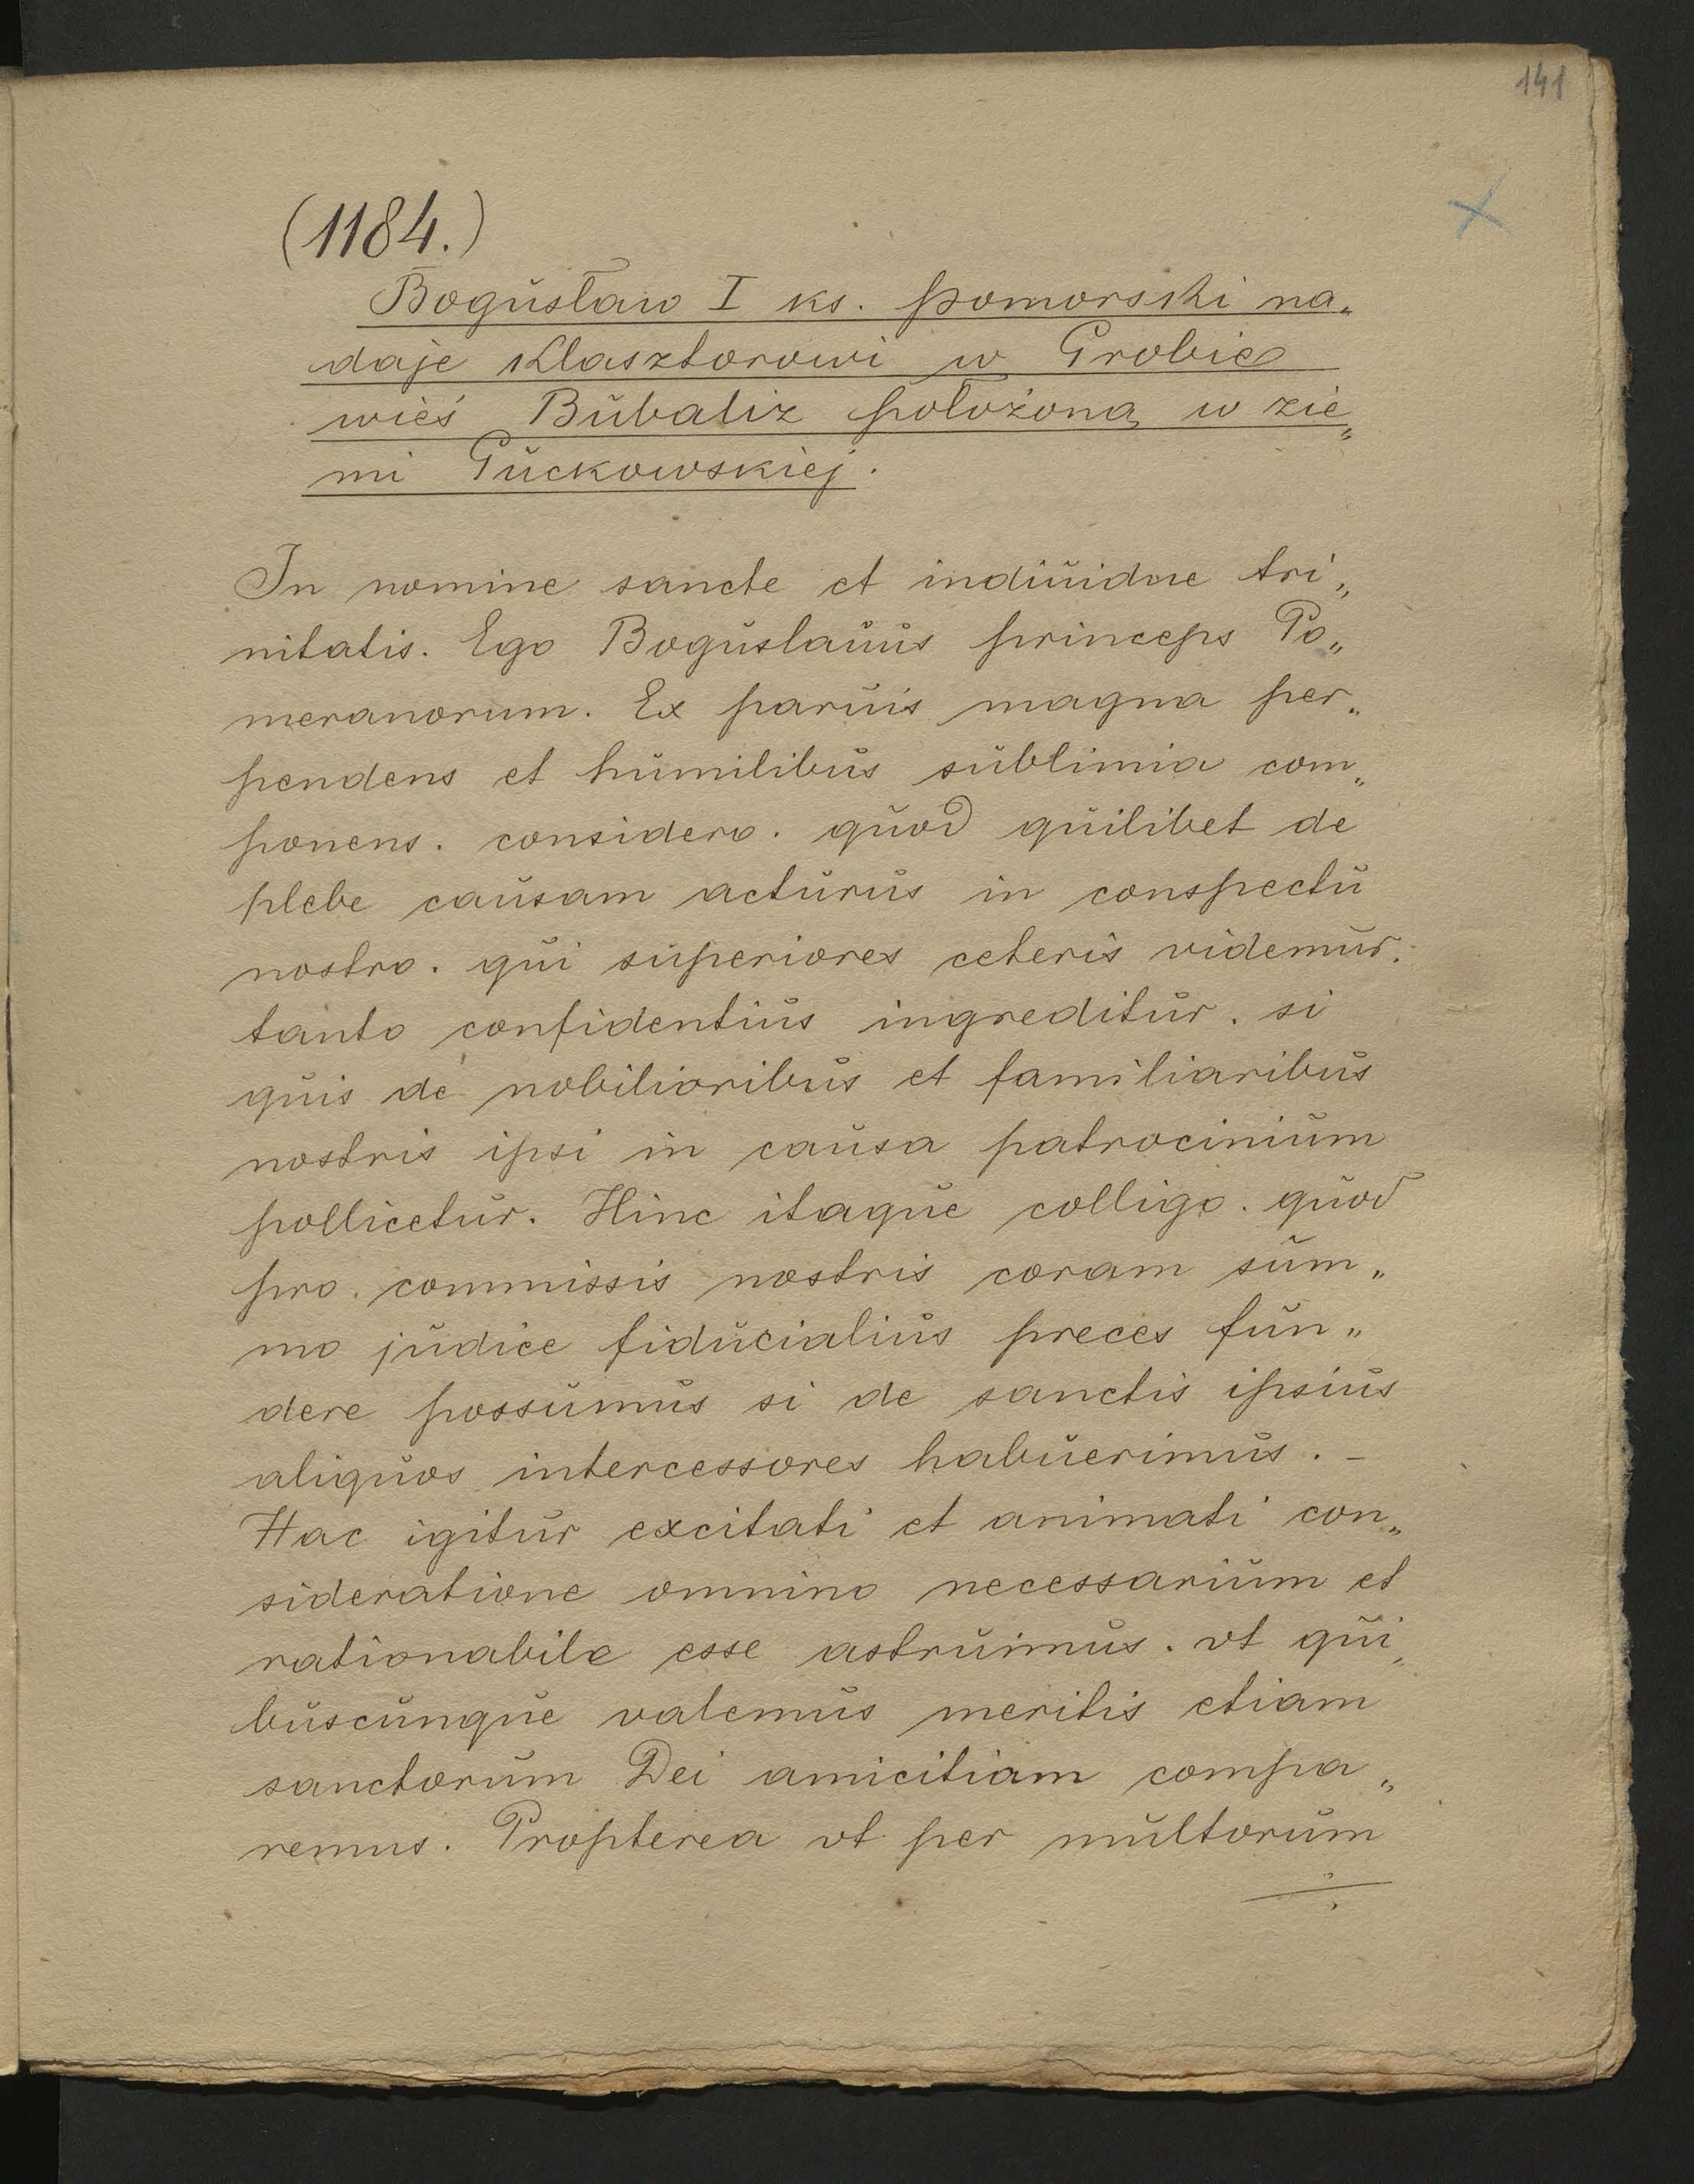 141
(1184.)
Bogusław I ks. pomorski na„
daje klasztorowi w Grobie
wieś Bubaliz położoną w zie„
mi Guckowskiej.
In nomine sancte et indiuidue tri„
nitatis. Ego Boguslauus princeps Po„
meranorum. Ex paruis magna per„
pendens et humilibus sublimia com„
ponens. considero. quod quilibet de
plebe causam acturus in conspectu
nostro. qui superiores ceteris videmur.
tanto confidentius ingreditur. si
quis de nobilioribus et familiaribus
nostris ipsi in causa patrocinium
pollicetur. Hinc itaque colligo. quod
pro. commissis nostris coram sum„
mo judice fiducialius preces fun„
dere possumus si de sanctis ipsius
aliquos intercessores habuerimus. –
Hac igitur excitati et animati con„
sideratione omnino necessarium et
rationabile esse astruimus. vt qui„
buscunque valemus meritis etiam
sanctorum Dei amicitiam compa„
remus. Propterea vt per multorum